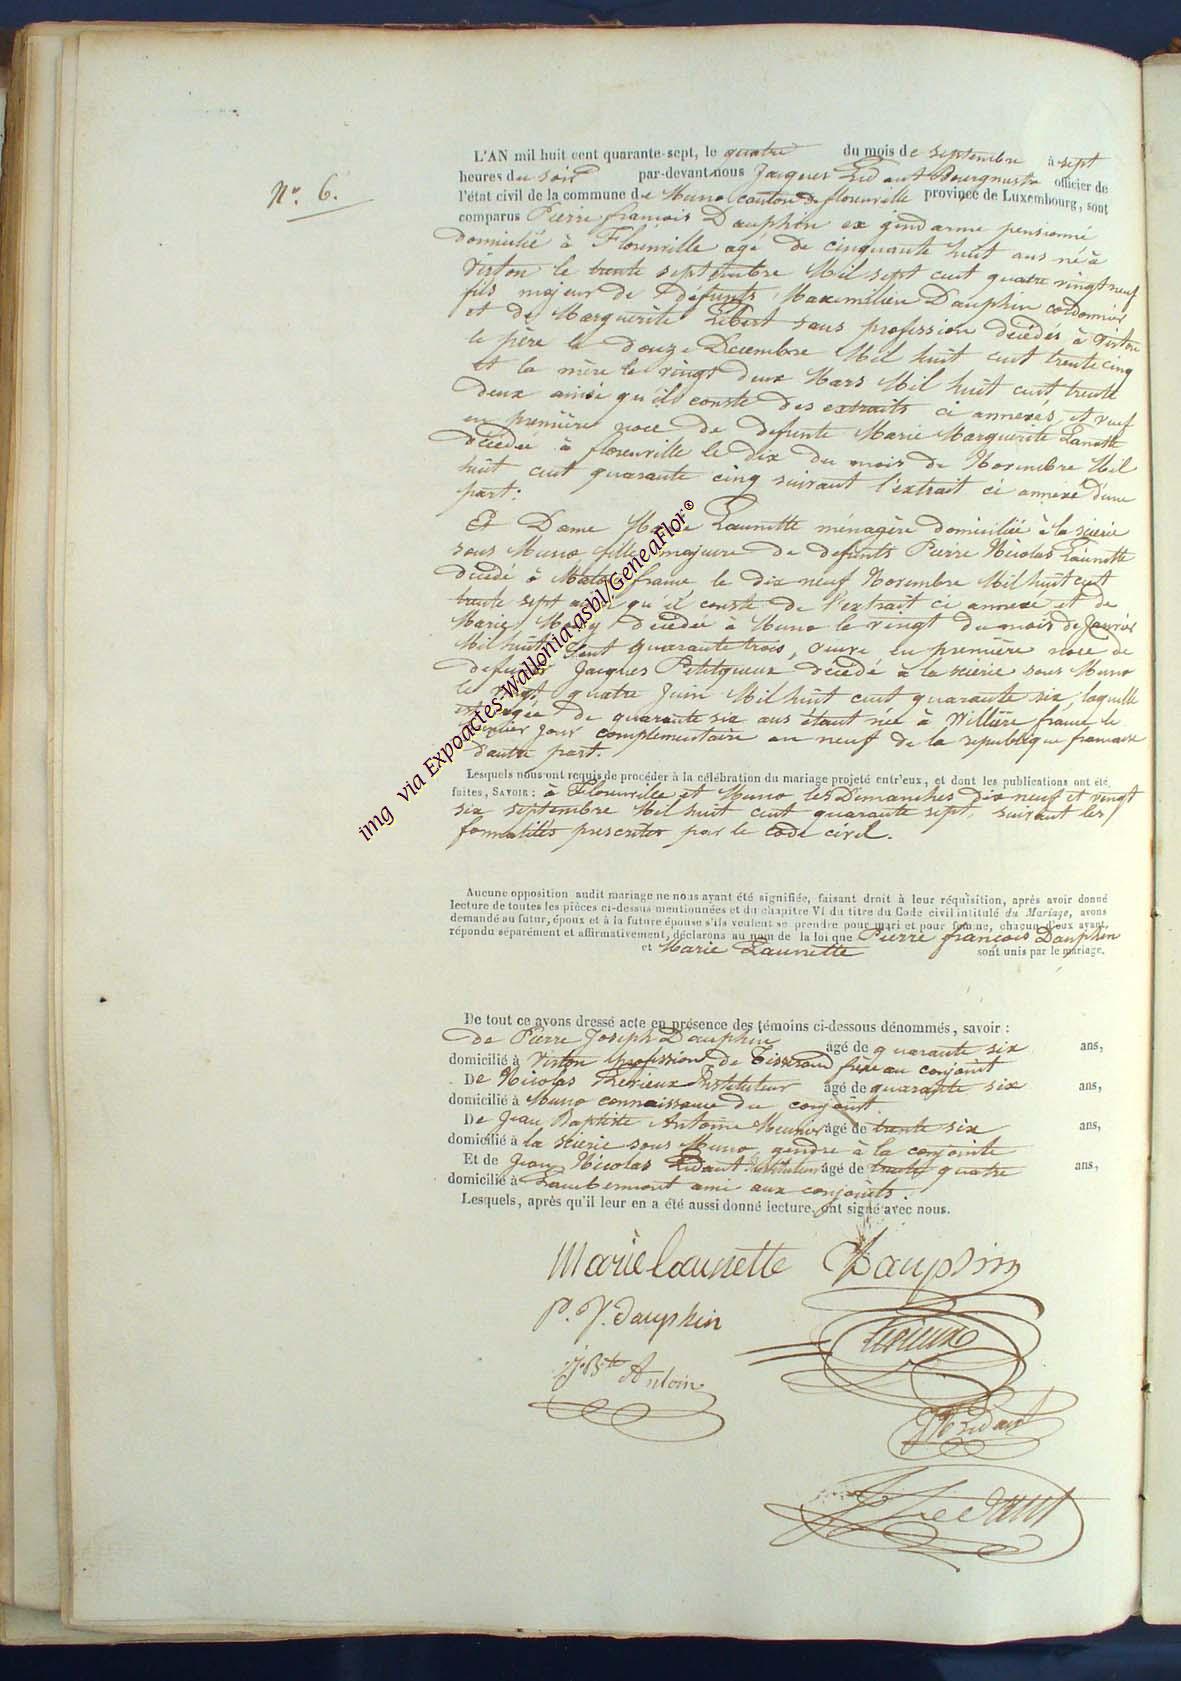 N° 6.
L'AN mil huit cent quarante-sept, le quatre du mois de septembre à sept
heures du soir par-devant nous Jacques Lédant Bourgmestre officier de
l'état civil de la commune de Muno canton de florenville province de Luxembourg, sont
comparus Pierre françois Dauphin ex gendarme pensionné
domicilié à Florenville agé de cinquante huit ans né à
Virton le trente septembre Mil sept cent quatre vingt neuf
fils majeur de défunts Maximilien Dauphin cordonnier
et de Marguérite Lebert sans profession décédés à Virton
le père le douze Décembre Mil huit cent trente cinq
et la mère le vingt deux Mars Mil huit cent trente
deux ainsi qu'ils conste des extraits ci annexés, et veuf
en première noce de défunte Marie Marguerite Lanotte
décédée à florenville le dix du mois de Novembre Mil
huit cent quarante cinq suivant l'extrait ci annexé d'une
part:
Et Dame Marie Launette ménagère domiciliée à la scierie
sous Muno fille majeure de defunts Pierre Nicolas Launette
décédé à france le dix neuf Novembre Mil huit cent
trente sept ainsi qu'il conste de l'extrait ci annexé et de
Marie décédée à Muno le vingt du mois de Janvier
Mil huit Cent quarante trois, veuve en première noce de
defunt Jacques Petitqueux décédé à la scierie sous Muno
le vingt quatre Juin Mil huit cent quarante six, laquelle
est agée de quarante six ans étant née à Willière france le
jour complémentaire an neuf de la république francaise
d'autre part.
Lesquels nous ont requis de procéder à la célébration du mariage projeté entr'eux, et dont les publications ont été
faites, SAVOIR: à Florenville et Muno les Dimanches dix neuf et vingt
six septembre Mil huit cent quarante sept, suivant les
formalités prescrites par le Code civil.
Aucune opposition audit mariage ne nous ayant été signifiée, faisant droit à leur réquisition, après avoir donné
lecture de toutes les pièces ci-dessus mentionnées et du chapitre VI du titre du Code civil intitulé du Mariage, avons
demandé au futur, époux et à la future épouse s'ils veulent se prendre pour mari et pour femme, chacun d'eux ayant
répondu séparément et affirmativement, déclarons au nom de la loi que Pierre françois Dauphin
et Marie Launette sont unis par le mariage.
De tout ce avons dressé acte en présence des témoins ci-dessous dénommés, savoir :
De Pierre Joseph Dauphin âgé de quarante six ans,
domicilié à Virton profession de Tisserand frère au conjoint
De Nicolas Lerieux Instituteur âgé de quarante six ans,
domicilié à Muno connaissance du conjoint
De Jean Baptiste Antoine Meunier âgé de trente six ans,
domicilié à la scierie sous Muno gendre à la conjointe
Et de Jean Nicolas Lédant Instituteur âgé de trente quatre ans,
domicilié à Lambermont ami aux conjoints.
Lesquels, après qu'il leur en a été aussi donné lecture, ont signé avec nous.
Marie Launette Dauphin
P. J. Dauphin
Lerieux
J. Bte Antoin
JN Lédant
J Lédant
img via Expoactes-Wallonia-asbl/GeneaFlor®